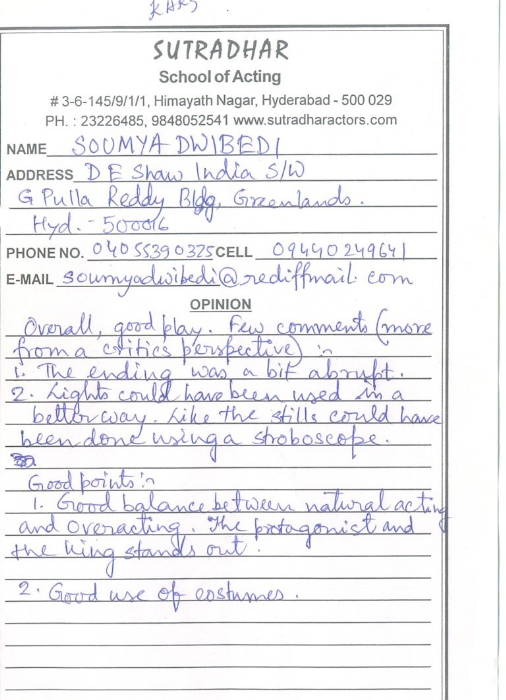 SUTRADHAR
School of Acting
# 3-6-145/9/1/1, Himayath Nagar, Hyderabad - 500 029
PH. : 23226485, 9848052541 www.sutradharactors.com
NAME SOUMYA DWIBEDI
ADDRESS D E Shaw India S/W
G Pulla Reddy Bldg, Greenlands.
Hyd. - 500016
PHONE NO. 040 55390375 CELL 09440249641
E-MAIL soumyadwibedi@rediffmail.com
OPINION
Overall, good play. Few comments (more
from a critics perspective) :~
1. The ending was a bit abrupt.
2. Lights could have been used in a
better way. Like the stills could have
been done using a stroboscope.
Good points :~
1. Good balance between natural acting
and overacting. The protagonist and
the king stands out.
2. Good use of costumes.